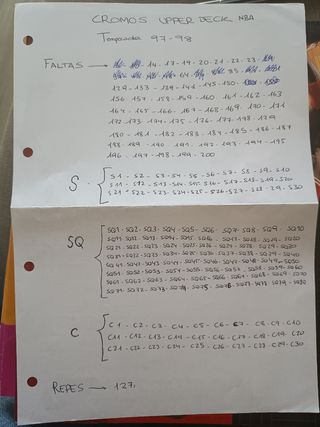 CROMOS UPPER DECK NBA
Temporada 97-98
FALTAS → 14 - 17 - 19 - 20 - 21 - 22 - 23
129 - 133 - 134 - 144 - 145 - 150
156 - 157 - 158 - 159 - 160 - 161 - 162 - 163
164 - 165 - 166 - 167 - 168 - 169 - 170 - 171
172 - 173 - 174 - 175 - 176 - 177 - 178 - 179
180 - 181 - 182 - 183 - 184 - 185 - 186 - 187
188 - 189 - 190 - 191 - 192 - 193 - 194 - 195
196 - 197 - 198 - 199 - 200
S1 - S2 - S3 - S4 - S5 - S6 - S7 - S8 - S9 - S10
S { S11 - S12 - S13 - S14 - S15 - S16 - S17 - S18 - S19 - S20
S21 - S22 - S23 - S24 - S25 - S26 - S27 - S28 - 29 - S30
SQ1 - SQ2 - SQ3 - SQ4 - SQ5 - SQ6 - SQ7 - SQ8 - SQ9 - SQ10
SQ11 - SQ12 - SQ13 - SQ14 - SQ15 - SQ16 - SQ17 - SQ18 - SQ19 - SQ20
SQ { SQ21 - SQ22 - SQ23 - SQ24 - SQ25 - SQ26 - SQ27 - SQ28 - SQ29 - SQ30
SQ31 - SQ32 - SQ33 - SQ34 - SQ35 - SQ36 - SQ37 - SQ38 - SQ39 - SQ40
SQ41 - SQ42 - SQ43 - SQ44 - SQ45 - SQ46 - SQ47 - SQ48 - SQ49 - SQ50
SQ51 - SQ52 - SQ53 - SQ54 - SQ55 - SQ56 - SQ57 - SQ58 - SQ59 - SQ60
SQ61 - SQ62 - SQ63 - SQ64 - SQ65 - SQ66 - SQ67 - SQ68 - SQ69 - SQ70
SQ71 - SQ72 - SQ73 - SQ74 - SQ75 - SQ76 - SQ77 - SQ78 - SQ79 - SQ80
C1 - C2 - C3 - C4 - C5 - C6 - C7 - C8 - C9 - C10
C { C11 - C12 - C13 - C14 - C15 - C16 - C17 - C18 - C19 - C20
C21 - C22 - C23 - C24 - C25 - C26 - C27 - C28 - C29 - C30
REPES → 127.